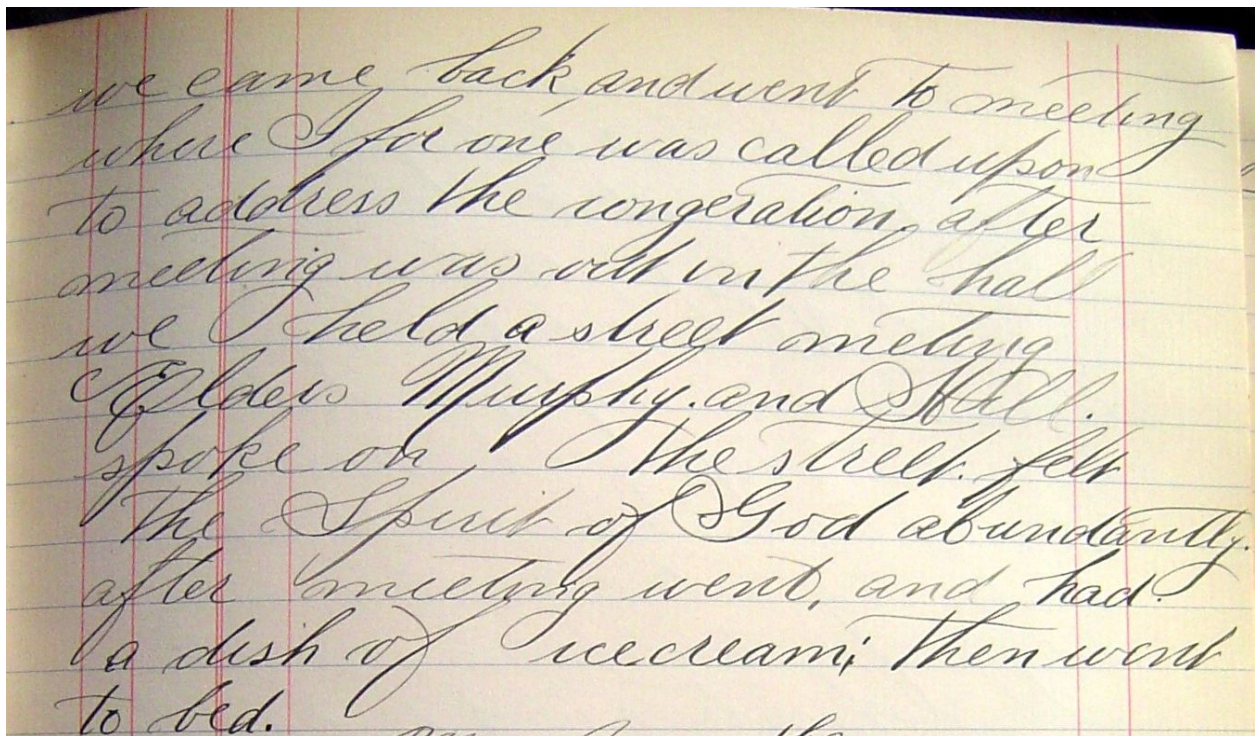 we came back and went to meeting
where I for one was called upon
to address the congeration, after
meeting was out in the hall
we held a street meting
Elders Murphy. and Still.
spoke on the street. felt
the Spirit of God abundantly.
after meeting went, and had.
a dish of icecream; then went
to bed.